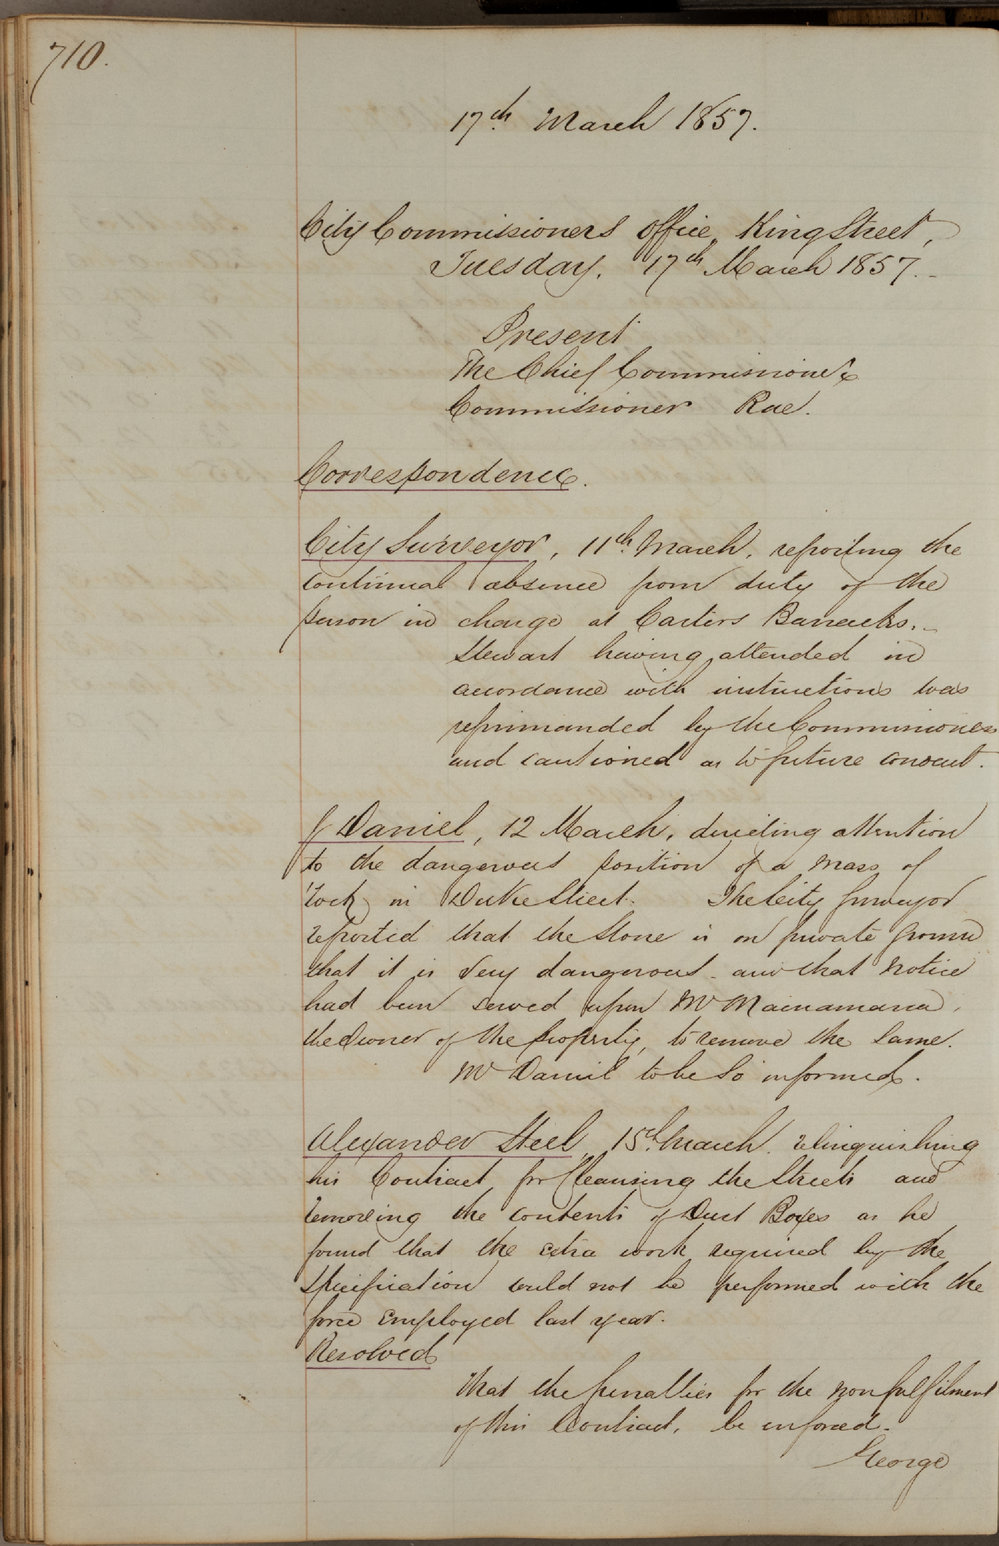 710.
17th March 1857.
City Commissioners Office, King Street,
Tuesday, 17th March 1857.
Present
The Chief Commissioner &
Commissioner Rae.
Correspondence.
City Surveyor, 11th March, reporting the
continual absence from duty of the
person in charge at Carters Barracks.
Stewart having attended in
accordance with instructions was
reprimanded by the Commissioners
and cautioned as to future conduct.
J Daniel, 12 March, directing attention
to the dangerous position of a mass of
rock in Duke Street. The City Surveyor
reported that the Stone is on private ground
that it is very dangerous and that notice
had been served upon Mr Macnamara,
the Owner of the property, to remove the same.
Mr Daniel to be so informed.
Alexander Steel, 15th March, relinquishing
his Contract for Cleansing the Streets and
removing the contents of Dust Boxes as he
found that the extra work required by the
Specification could not be performed with the
force employed last year.
Resolved
That the penalties for the nonfulfilment
of this Contract, be enforced.
George